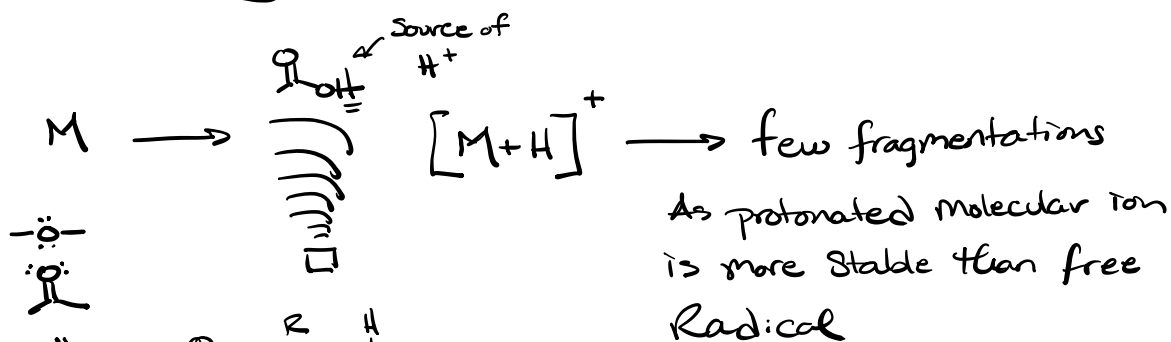 Source of
H+
O
OH
M → [M+H]+ → few fragmentations
As protonated molecular ion
is more stable than free
Radical
–O–
O
R H